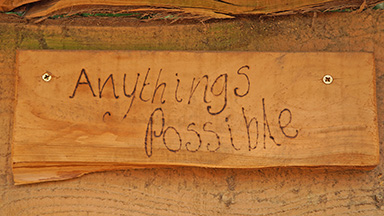 Anythings
Possible